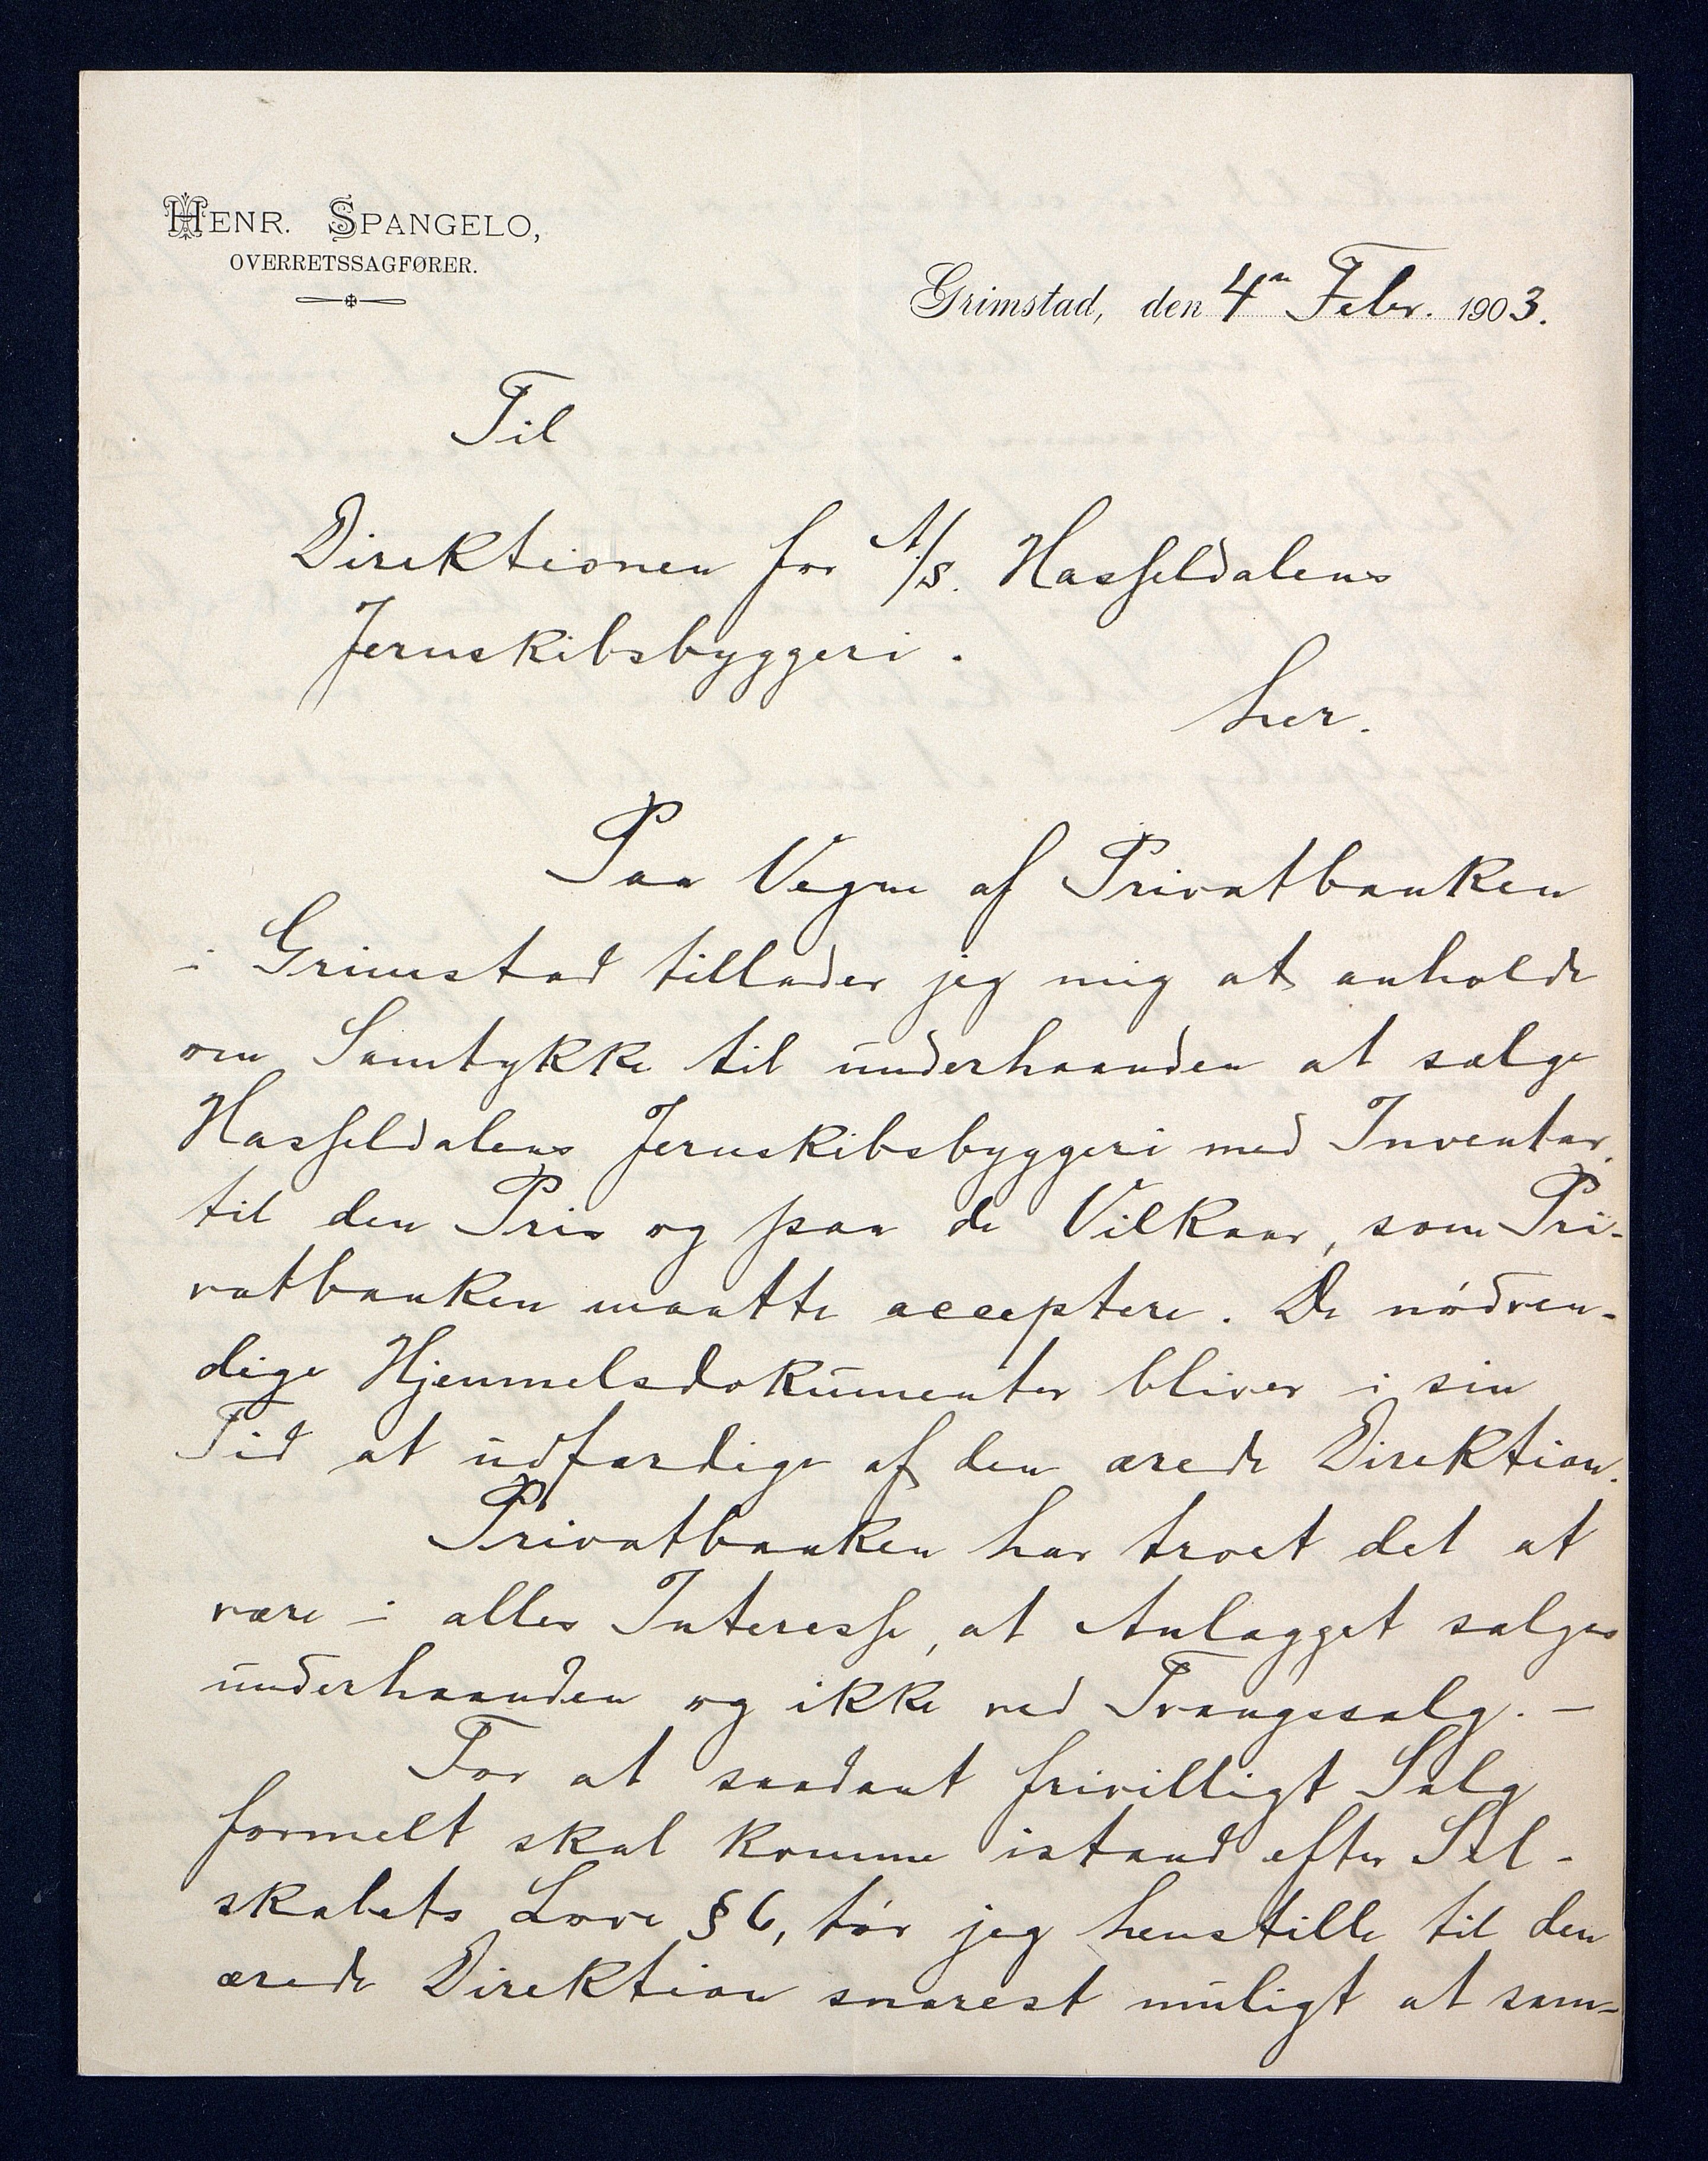 HENR. SPANGELO,
OVERRETSSAGFØRER.
Grimstad, den 4de Febr. 1903.
Til
Direktionen for A/S. Hasseldalens
Jernskibsbyggeri.
her.
Paa Vegne af Privatbanken
i Grimstad tillader jeg mig at anholde
om Samtykke til underhaanden at sælge
Hasseldalens Jernskibsbyggeri med Inventar,
til den Pris og paa de Vilkaar, som Pri-
vatbanken maatte acceptere. De nødven-
dige Hjemmelsdokumenter bliver i sin
Tid at udfærdige af den ærede Direktion.
Privatbanken har troet det at
være i alles Interesse, at Anlægget sælges
underhaanden og ikke ved Tvangssalg. —
For at saadant frivilligt Salg
formelt skal komme istand efter Sel-
skabets Love § 6, tør jeg henstille til den
ærede Direktion snarest muligt at sam-